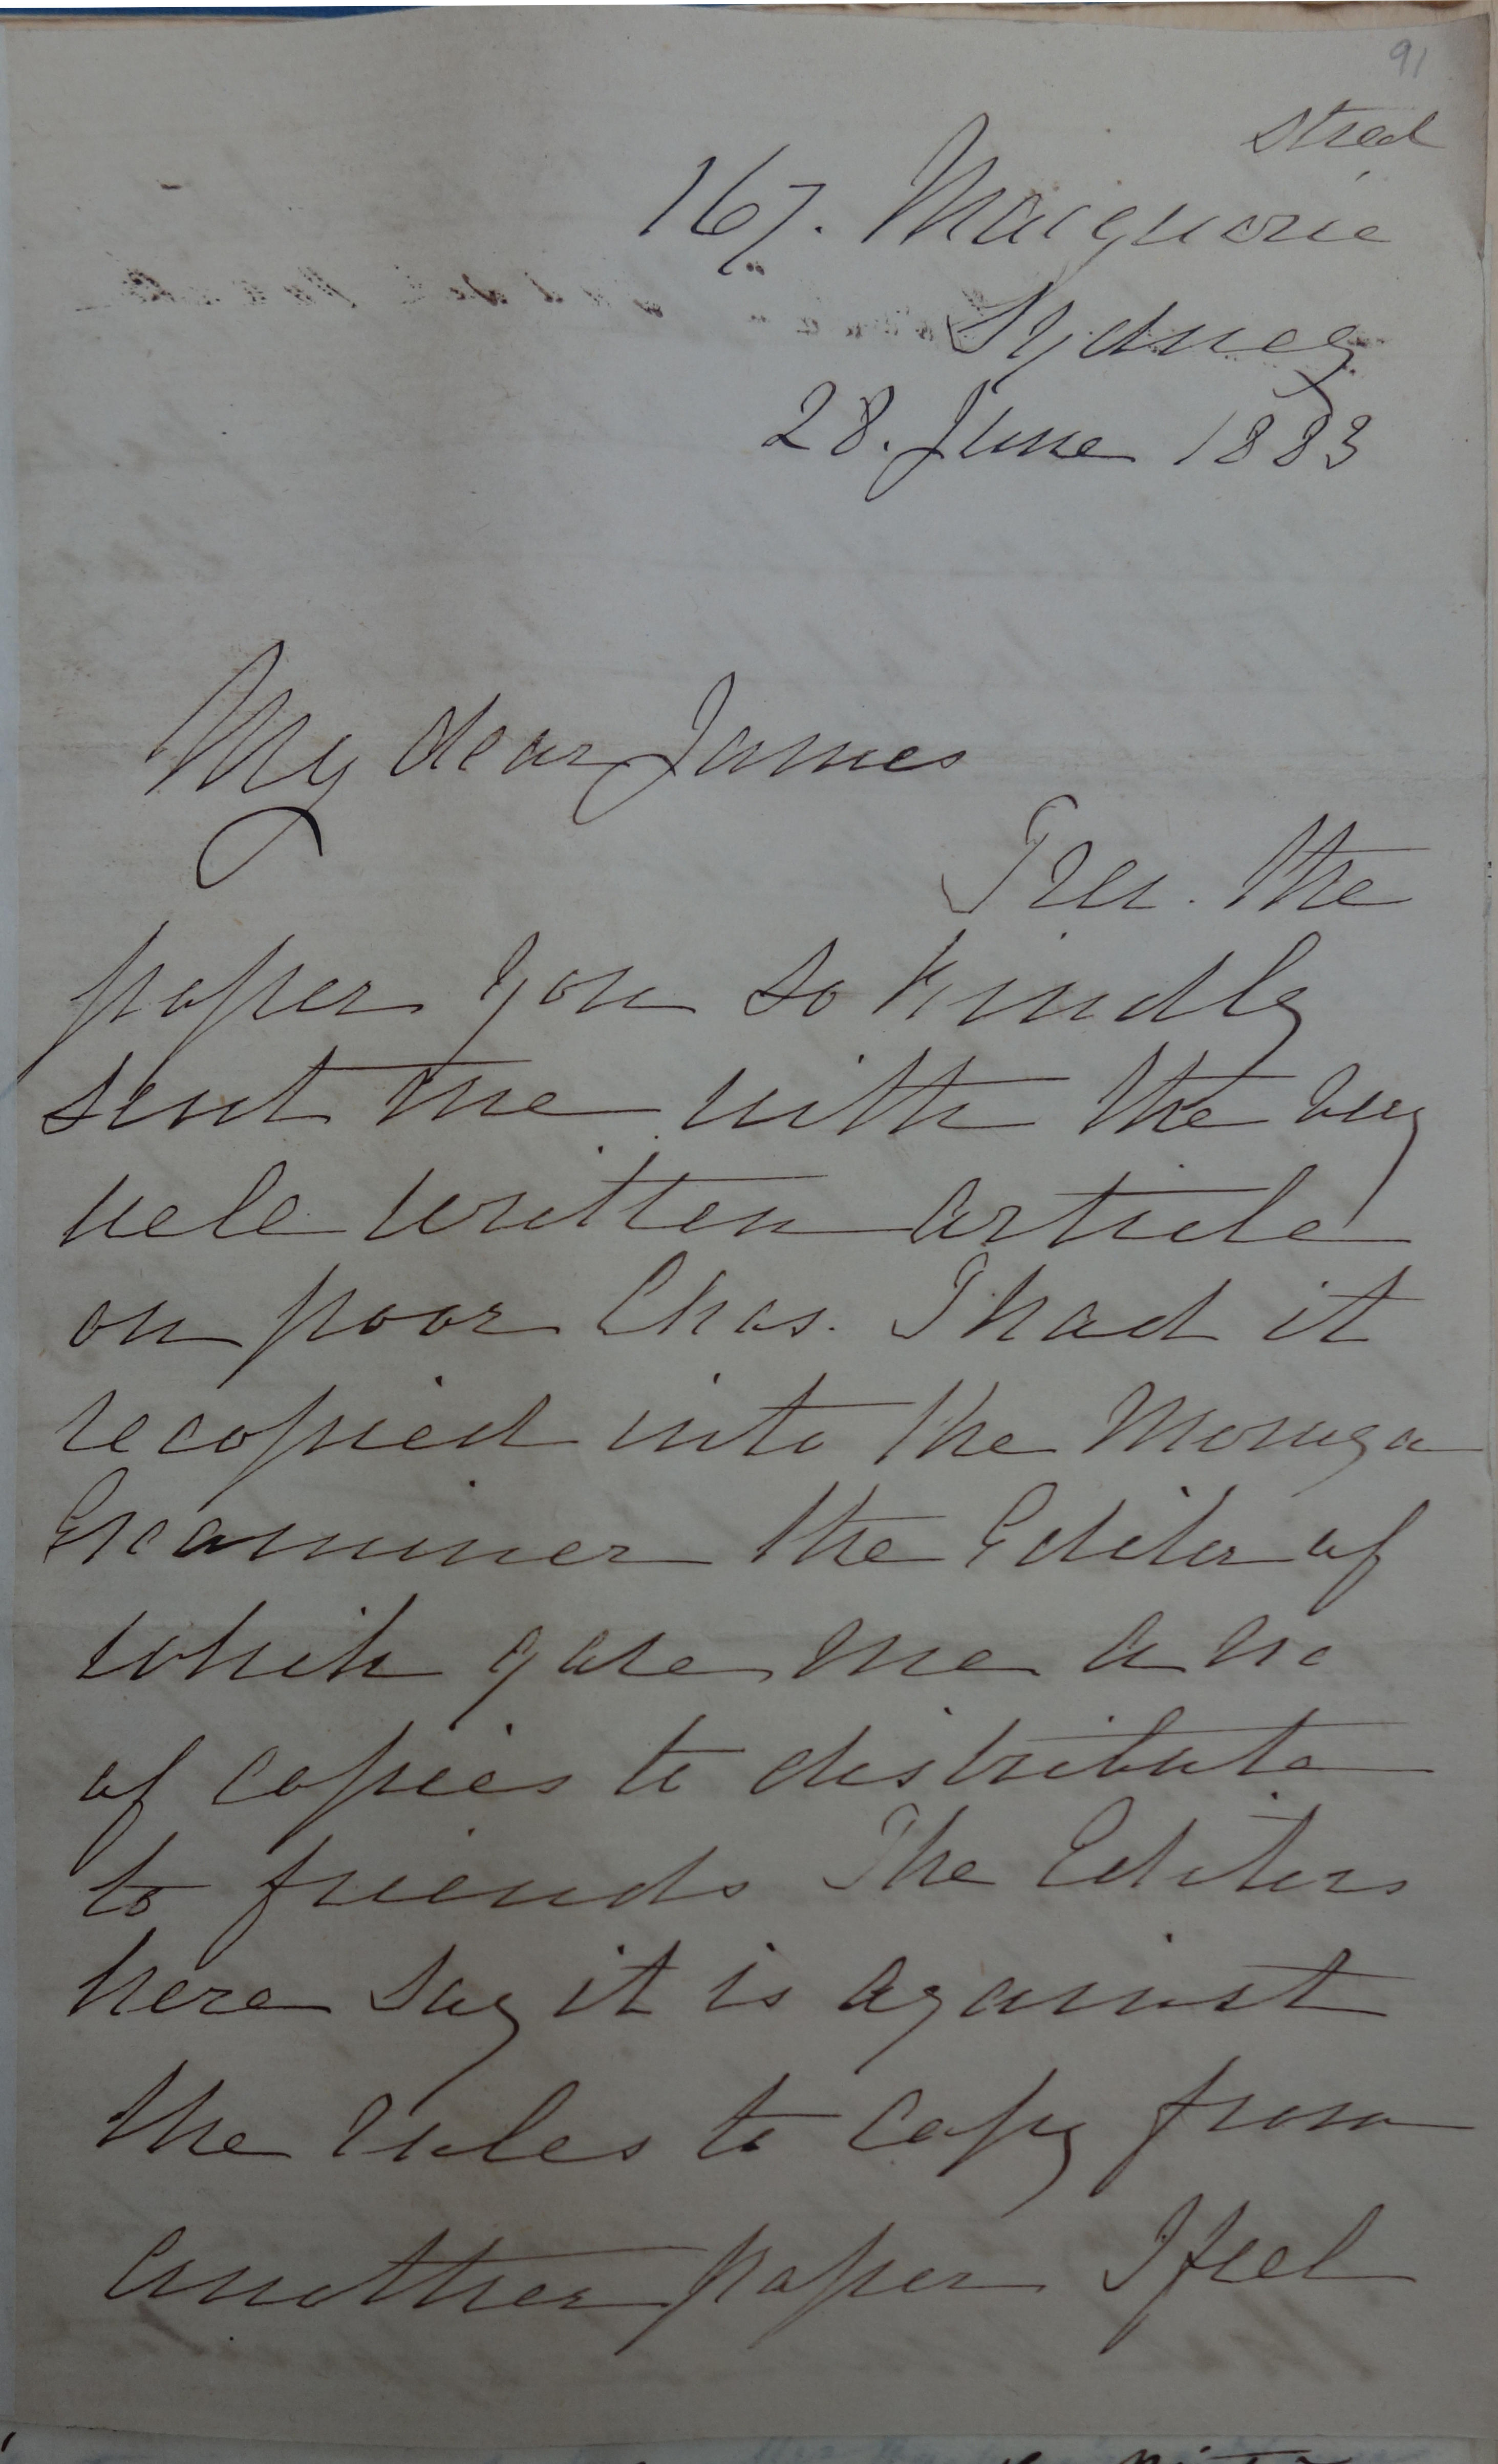 91
Street
167. Macquarie
Sydney
28. June 1883
My dear James
I rec. the
paper you so kindly
sent me with the very
well written article
on poor Chas. I had it
recopied into the Moruya
Examiner the Editor of
which gave me a no
of copies to distribute
to friends The Editors
here say it is against
the rules to copy from
another paper I feel